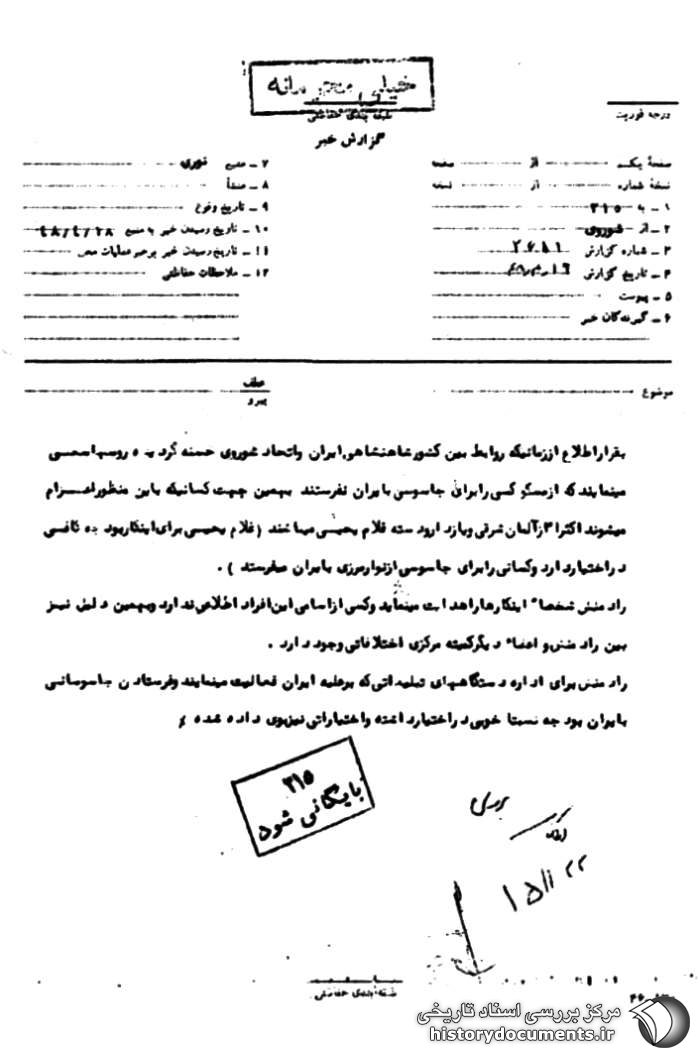 خیلی محرمانه
طبقه بندی حفاظتی
درجه فوریت
گزارش خبر
صفحهٔ یکم از صفحه
نسخهٔ شماره از نسخه
۱ - به ۳۱۵
۲ - از شوروی
۳ - شماره گزارش
۴ - تاریخ گزارش
۵ - پیوست
۶ - گیرندگان خبر
۷ - منبع نوری
۸ - منشأ
۹ - تاریخ وقوع
۱۰ - تاریخ رسیدن خبر به منبع
۱۱ - تاریخ رسیدن خبر برهبر عملیات
۱۲ - ملاحظات حفاظتی
موضوع
عطف
پیرو
بقرار اطلاع از زمانیکه روابط بین کشور شاهنشاهی ایران و اتحاد شوروی حسنه گردیده روسها سعی
مینمایند که از مسکو کسی را برای جاسوسی بایران نفرستند بهمین جهت کسانیکه باین منظور اعزام
میشوند اکثرا از آلمان شرقی و یا از دارودسته غلام یحیی میباشند (غلام یحیی برای اینکار بودجه کافی
در اختیار دارد و کسانی را برای جاسوسی از نوار مرزی بایران میفرستد) .
رادمنش شخصا اینکارها را هدایت مینماید و کسی از اسامی این افراد اطلاعی ندارد و بهمین دلیل نیز
بین رادمنش و اعضاء دیگر کمیته مرکزی اختلافاتی وجود دارد .
رادمنش برای اداره دستگاههای تبلیغاتی که بر علیه ایران فعالیت مینمایند و فرستادن جاسوسانی
بایران بودجه نسبتا خوبی در اختیار داشته و اختیاراتی نیز بوی داده شده
۳۱۵
بایگانی شود
طبقه بندی حفاظتی
مرکز بررسی اسناد تاریخی
historydocuments.ir